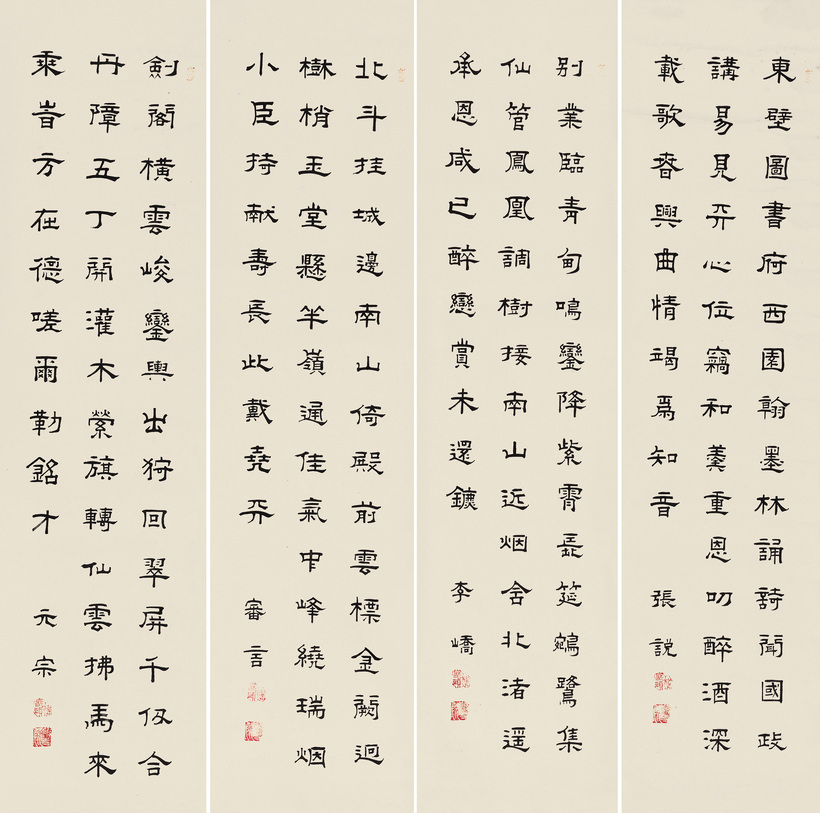 東壁圖書府西園翰墨林誦詩聞國政
講易見天心位竊和羹重恩叨醉酒深
載歌春興曲情竭爲知音 張說
別業臨青甸鳴鑾降紫霄長筵鵷鷺集
仙管鳳凰調樹接南山近烟含北渚遥
承恩咸已醉戀賞未還鑣 李嶠
北斗挂城邊南山倚殿前雲標金闕迥
樹梢玉堂懸半嶺通佳氣中峰繞瑞烟
小臣持献壽長此戴堯天 審言
劍閣橫雲峻鑾輿出狩回翠屏千仞合
丹障五丁開灌木縈旗轉仙雲拂馬來
乘旹方在德嗟爾勒銘才 元宗